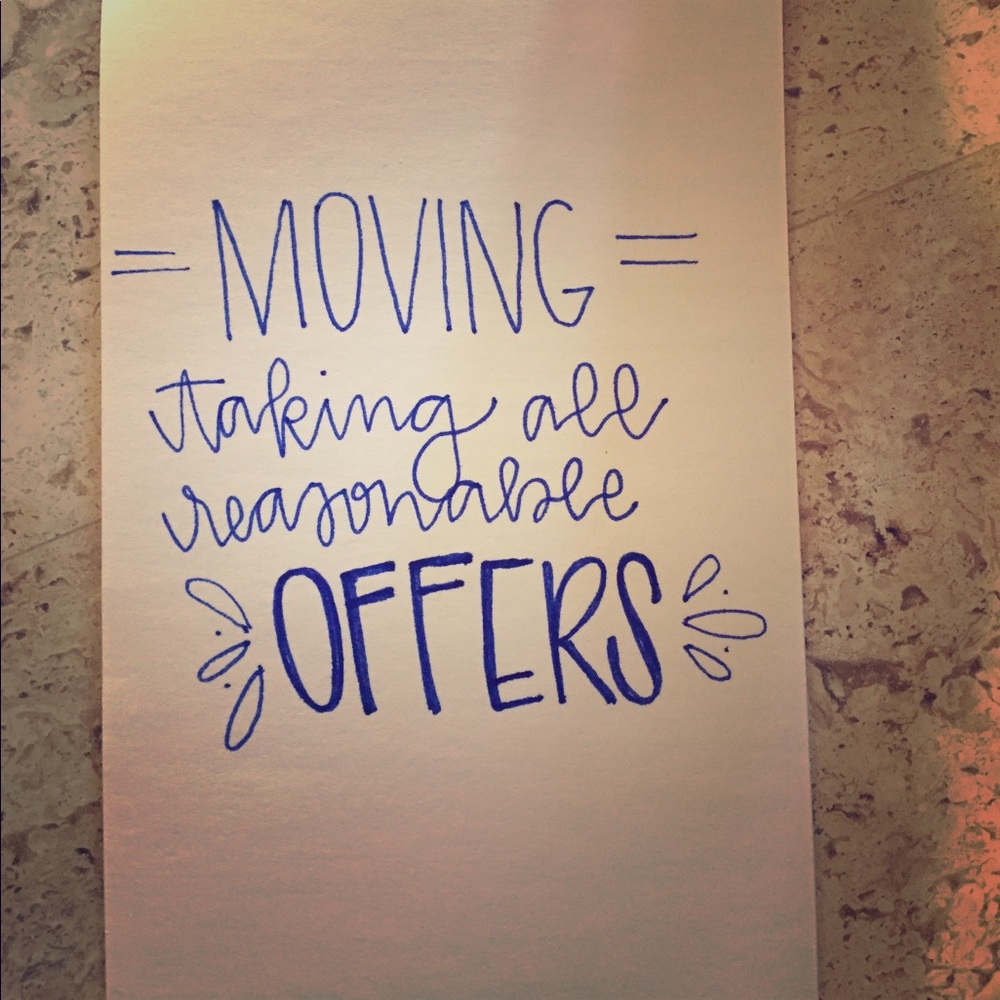 = MOVING =
taking all
reasonable
OFFERS